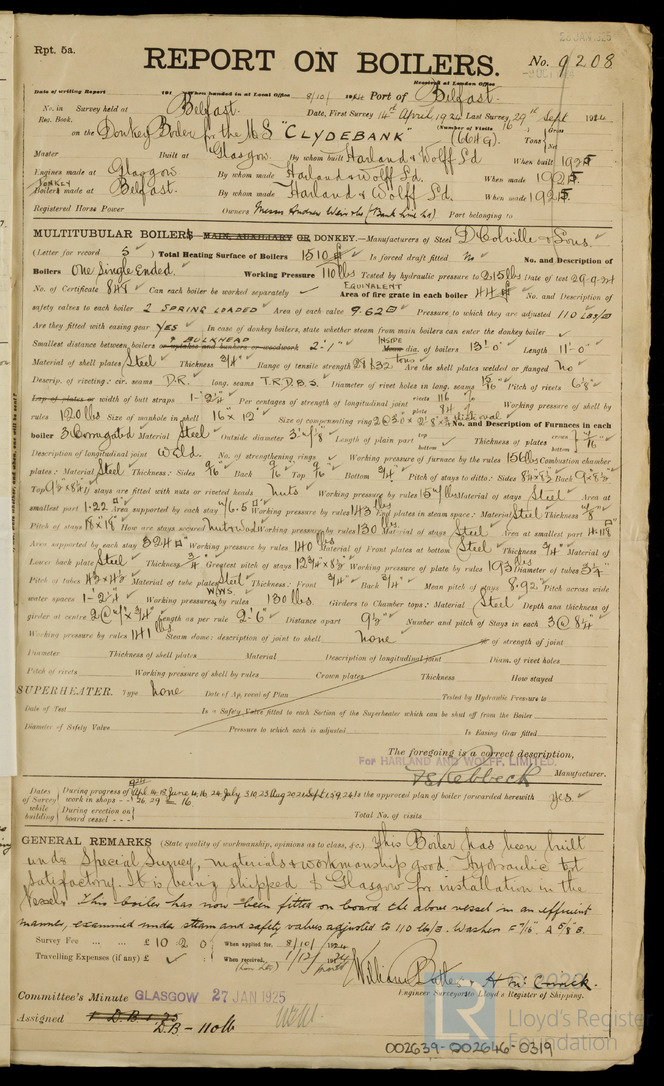 28 JAN 1925
Rpt. 5a.
REPORT ON BOILERS.
No. 9208
Received at London Office
Date of writing Report 191 When handed in at Local Office 8/10/ 1924 Port of Belfast.
No. in Survey held at Belfast. Date, First Survey 14th April 1924 Last Survey 29th Sept 1924
Reg. Book. (Number of Visits 16)
on the Donkey Boiler for the M.S "CLYDEBANK" (664 G) Tons Gross Net
Master Built at Glasgow By whom built Harland & Wolff Ld When built 1925
Engines made at Glasgow By whom made Harland & Wolff Ld. When made 1925
DONKEY
Boilers made at Belfast. By whom made Harland & Wolff Ld. When made 1925.
Registered Horse Power Owners Messrs Andrew Weir & Co (Bank Line Ld) Port belonging to
MULTITUBULAR BOILERS MAIN, AUXILIARY OR DONKEY.—Manufacturers of Steel D. Colville & Sons.
(Letter for record S) Total Heating Surface of Boilers 1510 Is forced draft fitted No No. and Description of
Boilers One Single Ended. Working Pressure 110 lbs Tested by hydraulic pressure to 215 lbs Date of test 29-9-24
No. of Certificate 848 Can each boiler be worked separately EQUIVALENT Area of fire grate in each boiler 44 No. and Description of
safety valves to each boiler 2 SPRING LOADED Area of each valve 9.62 Pressure to which they are adjusted 110 LBS/
Are they fitted with easing gear YES In case of donkey boilers, state whether steam from main boilers can enter the donkey boiler
Smallest distance between boilers or uptakes and bunkers or woodwork & BULKHEAD 2'-1" INSIDE Mean dia. of boilers 13'-0" Length 11'-0"
Material of shell plates Steel Thickness 3/4" Range of tensile strength 28 & 32 tons Are the shell plates welded or flanged No
Descrip. of riveting: cir. seams D.R. long. seams T.R.D.B.S. Diameter of rivet holes in long. seams 15/16" Pitch of rivets 6 5/8"
Lap of plates or width of butt straps 1'-2 1/4" Per centages of strength of longitudinal joint rivets 116 plate 84 Working pressure of shell by
rules 120 lbs Size of manhole in shell 16" x 12" Size of compensating ring No. and Description of Furnaces in each
boiler 3 Corrugated Material Steel Outside diameter Length of plain part top bottom Thickness of plates crown bottom 7/16"
Description of longitudinal joint Weld. No. of strengthening rings Working pressure of furnace by the rules 156 lbs Combustion chamber
plates: Material Steel Thickness: Sides 9/16" Back 9/16" Top 9/16" Bottom 3/4" Pitch of stays to ditto: Sides Back 9" x 8 1/2"
Top If stays are fitted with nuts or riveted heads Nuts Working pressure by rules Material of stays Steel Area at
smallest part 1.22 Area supported by each stay 76.5 Working pressure by rules 143 End plates in steam space: Material Steel Thickness 7/8"
Pitch of stays 18" x 18" How are stays secured Nuts & Was Working pressure by rules 130 lbs. Material of stays Steel Area at smallest part
Area supported by each stay 324 Working pressure by rules 140 lbs Material of Front plates at bottom Steel Thickness 3/4" Material of
Lower back plate Steel Thickness 3/4" Greatest pitch of stays 12 3/4" x 8 1/2" Working pressure of plate by rules 193 lbs Diameter of tubes 3 1/4"
Pitch of tubes 4 1/2" x 4 1/2" Material of tube plates Steel Thickness: Front 3/4" Back 3/4" Mean pitch of stays 8.92 Pitch across wide
water spaces 1'-2 1/4" W.W.S. Working pressures by rules 130 lbs. Girders to Chamber tops: Material Steel Depth and thickness of
girder at centre 2 @ 7" x 3/4" Length as per rule 2'-6" Distance apart 9 1/2" Number and pitch of Stays in each 3 @ 8 1/4"
Working pressure by rules 141 lbs Steam dome: description of joint to shell None % of strength of joint
Diameter Thickness of shell plates Material Description of longitudinal joint Diam. of rivet holes
Pitch of rivets Working pressure of shell by rules Crown plates Thickness How stayed
SUPERHEATER. Type None Date of Approval of Plan Tested by Hydraulic Pressure to
Date of Test Is a Safety Valve fitted to each Section of the Superheater which can be shut off from the Boiler
Diameter of Safety Valve Pressure to which each is adjusted Is Easing Gear fitted
The foregoing is a correct description,
For HARLAND AND WOLFF, LIMITED.
F E Rebbeck Manufacturer.
Dates of Survey while building
During progress of work in shops 1924 Apl 14. 15 June 4. 16. 24. July 3. 18. 23 Aug 20 26 Sept 1. 5 9 24 26 29 = 16. Is the approved plan of boiler forwarded herewith yes
During erection on board vessel Total No. of visits
GENERAL REMARKS (State quality of workmanship, opinions as to class, &c.) This Boiler has been built
under Special Survey, materials & workmanship good. Hydraulic test
satisfactory. It is being shipped to Glasgow for installation in the
vessel. This boiler has now been fitted on board the above vessel in an efficient
manner, examined under steam and safety valves adjusted to 110 lb/. Washers F 7/16". A 5/8".
Survey Fee £ 10 : 2 : 0 When applied for, 8/10/1924
Travelling Expenses (if any) £ When received, 1/12/1924
William Butler H. McCormick.
Engineer Surveyors to Lloyd's Register of Shipping.
Committee's Minute GLASGOW 27 JAN 1925
Assigned
DB – 110 lb
Lloyd's Register Foundation
002639-002646-0319